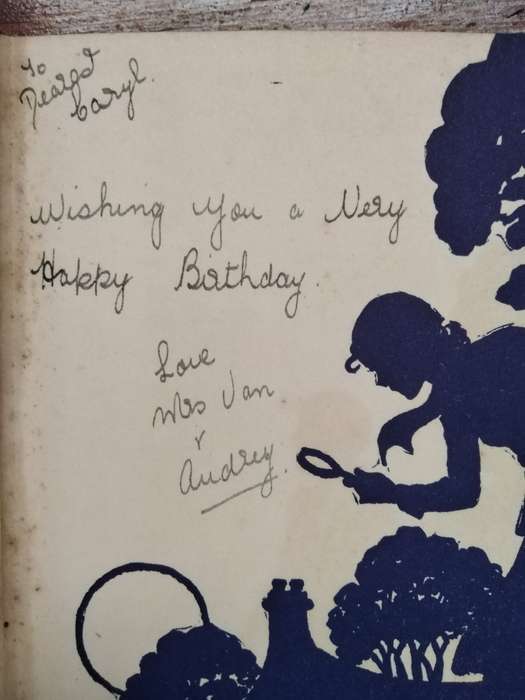 To
Dearest
Caryl.
Wishing You a Very
Happy Birthday.
Love
Mrs Van
&
Audrey.